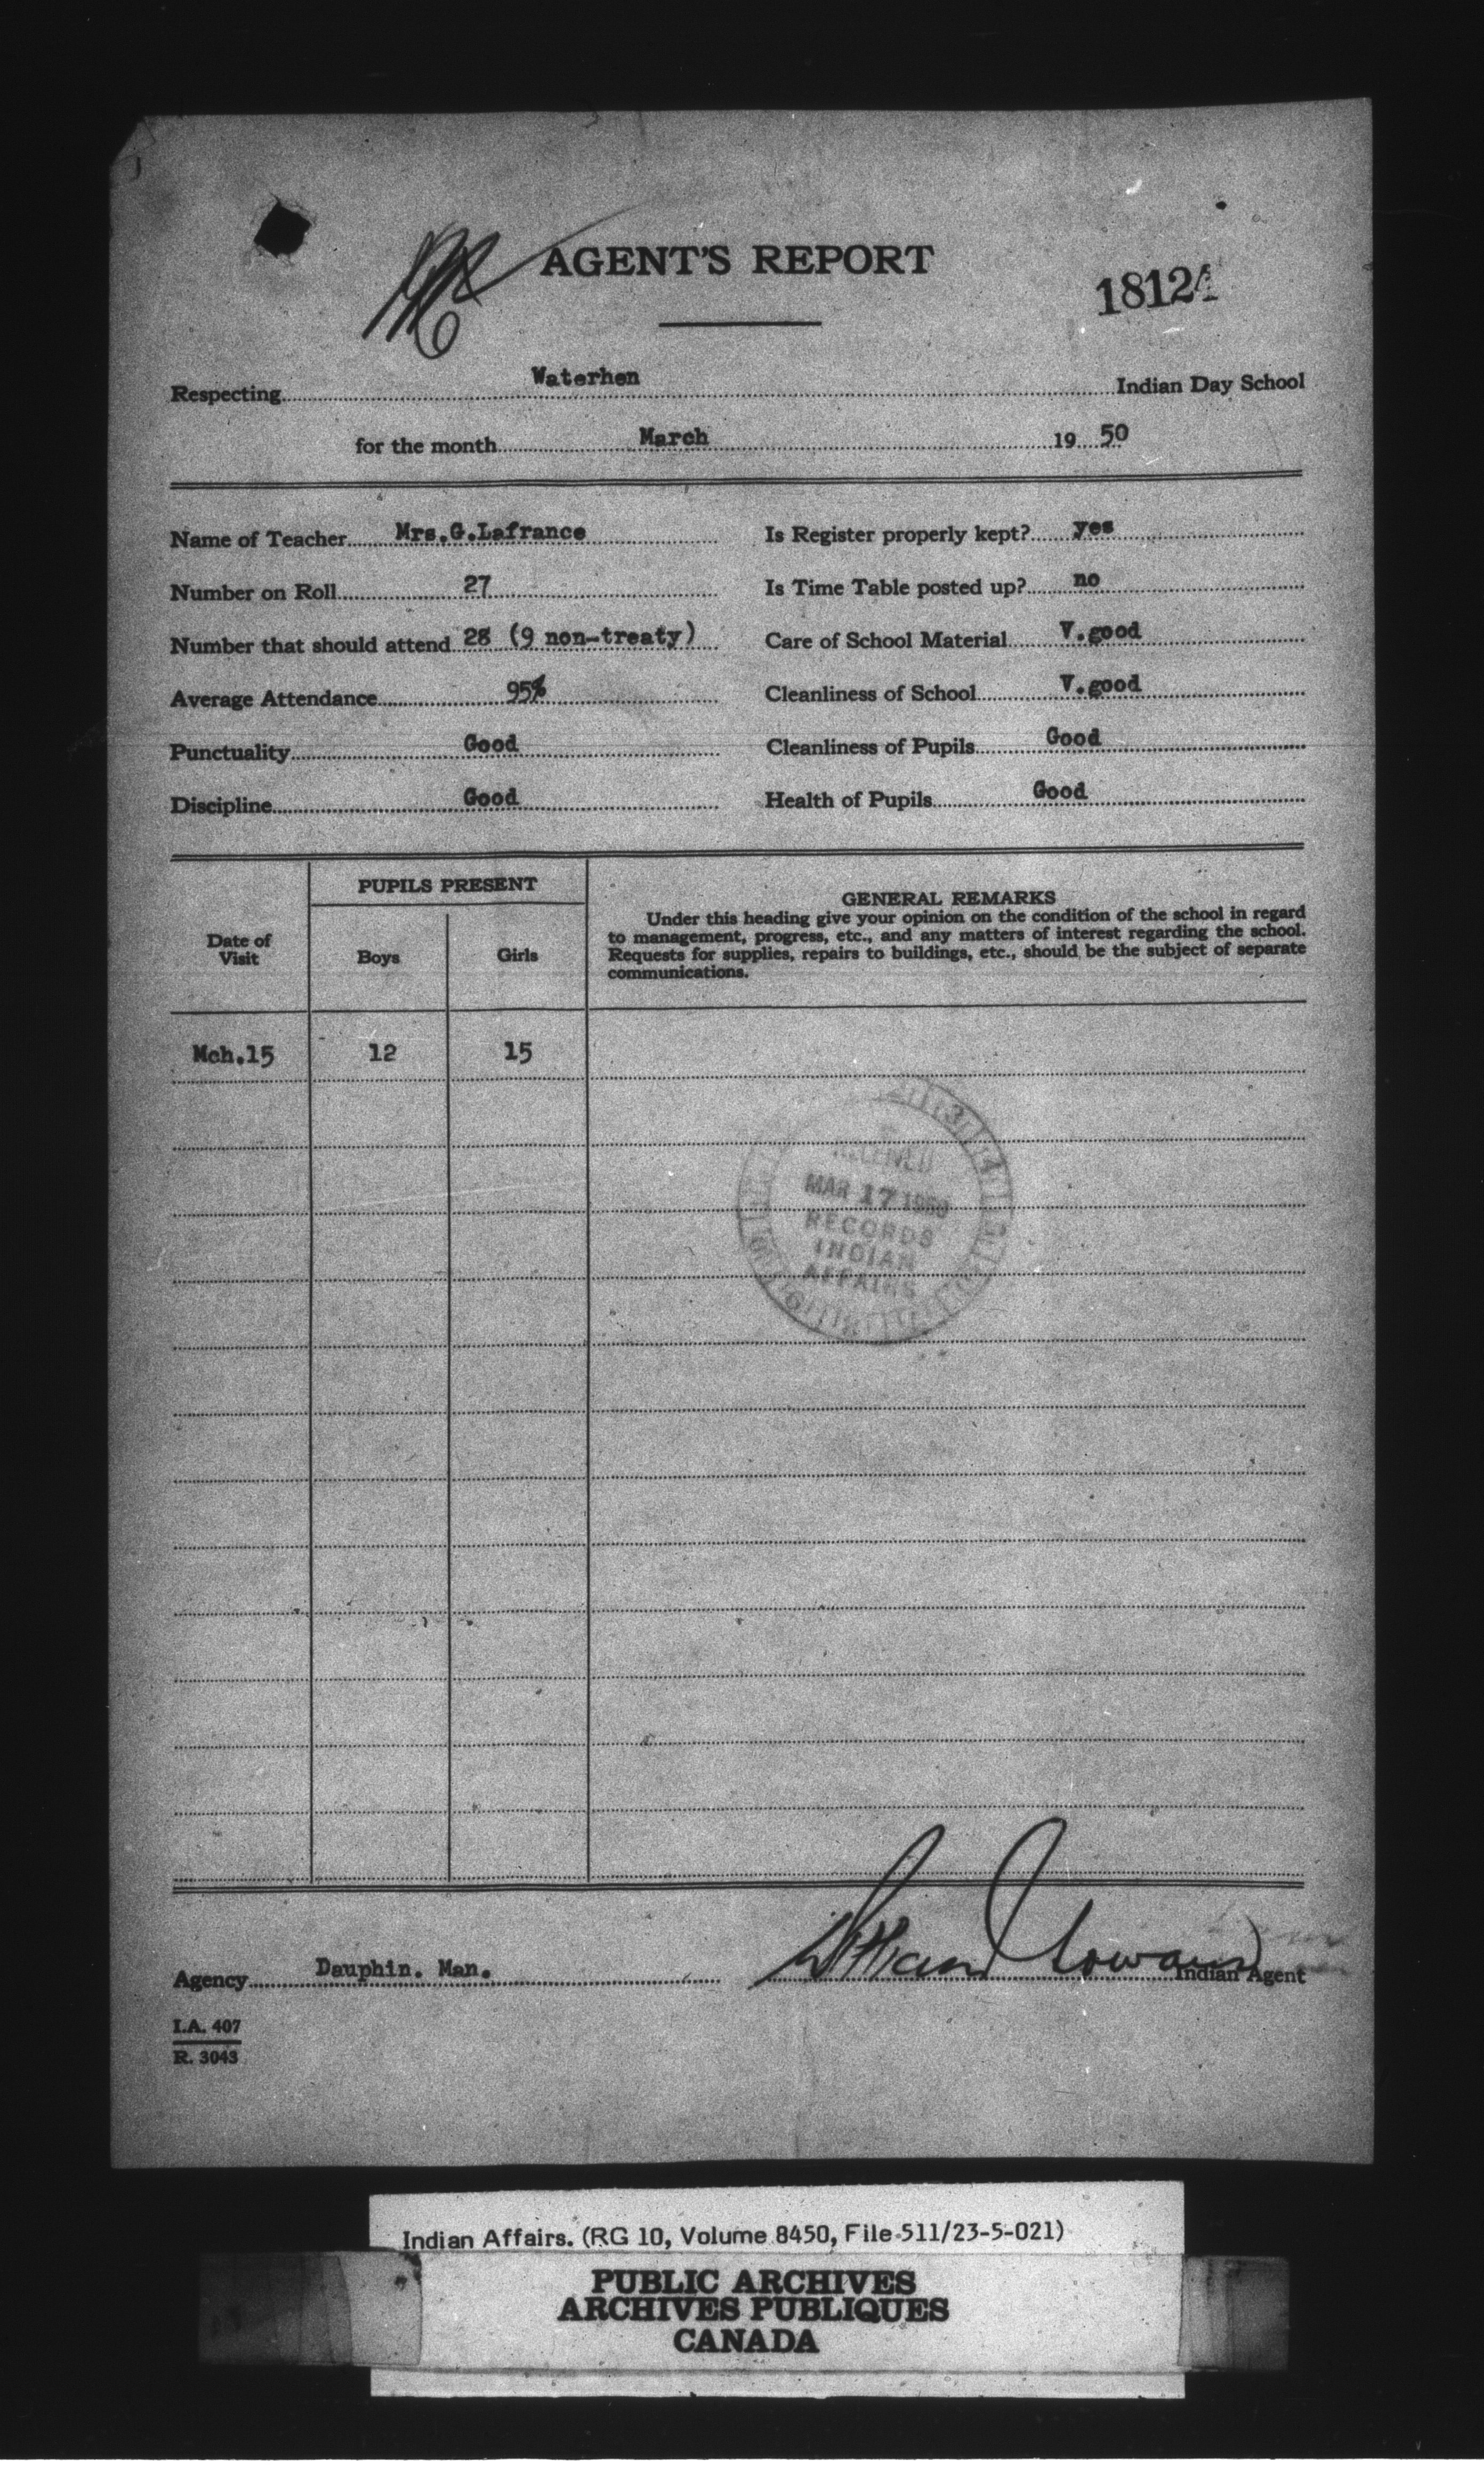 AGENT'S REPORT
18124
Respecting Waterhen Indian Day School
for the month March 19 50
Name of Teacher Mrs.G.Lafrance Is Register properly kept? yes
Number on Roll 27 Is Time Table posted up? no
Number that should attend 28 (9 non-treaty) Care of School Material V.good
Average Attendance 95% Cleanliness of School V.good
Punctuality Good Cleanliness of Pupils Good
Discipline Good Health of Pupils Good
Date of Visit
PUPILS PRESENT
Boys Girls
GENERAL REMARKS
Under this heading give your opinion on the condition of the school in regard
to management, progress, etc., and any matters of interest regarding the school.
Requests for supplies, repairs to buildings, etc., should be the subject of separate
communications.
Mch.15 12 15
RECEIVED
MAR 17 1950
RECORDS
INDIAN
AFFAIRS
Agency Dauphin. Man. Indian Agent
I.A. 407
R. 3043
Indian Affairs. (RG 10, Volume 8450, File 511/23-5-021)
PUBLIC ARCHIVES
ARCHIVES PUBLIQUES
CANADA